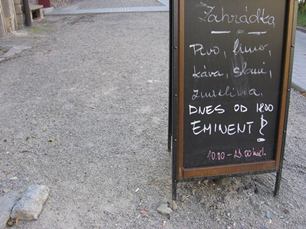 Zahrádka
Pivo, limo,
káva, slané,
zmrzlina.
DNES OD 1800
EMINENT!
10.00 - 23.00 hod.